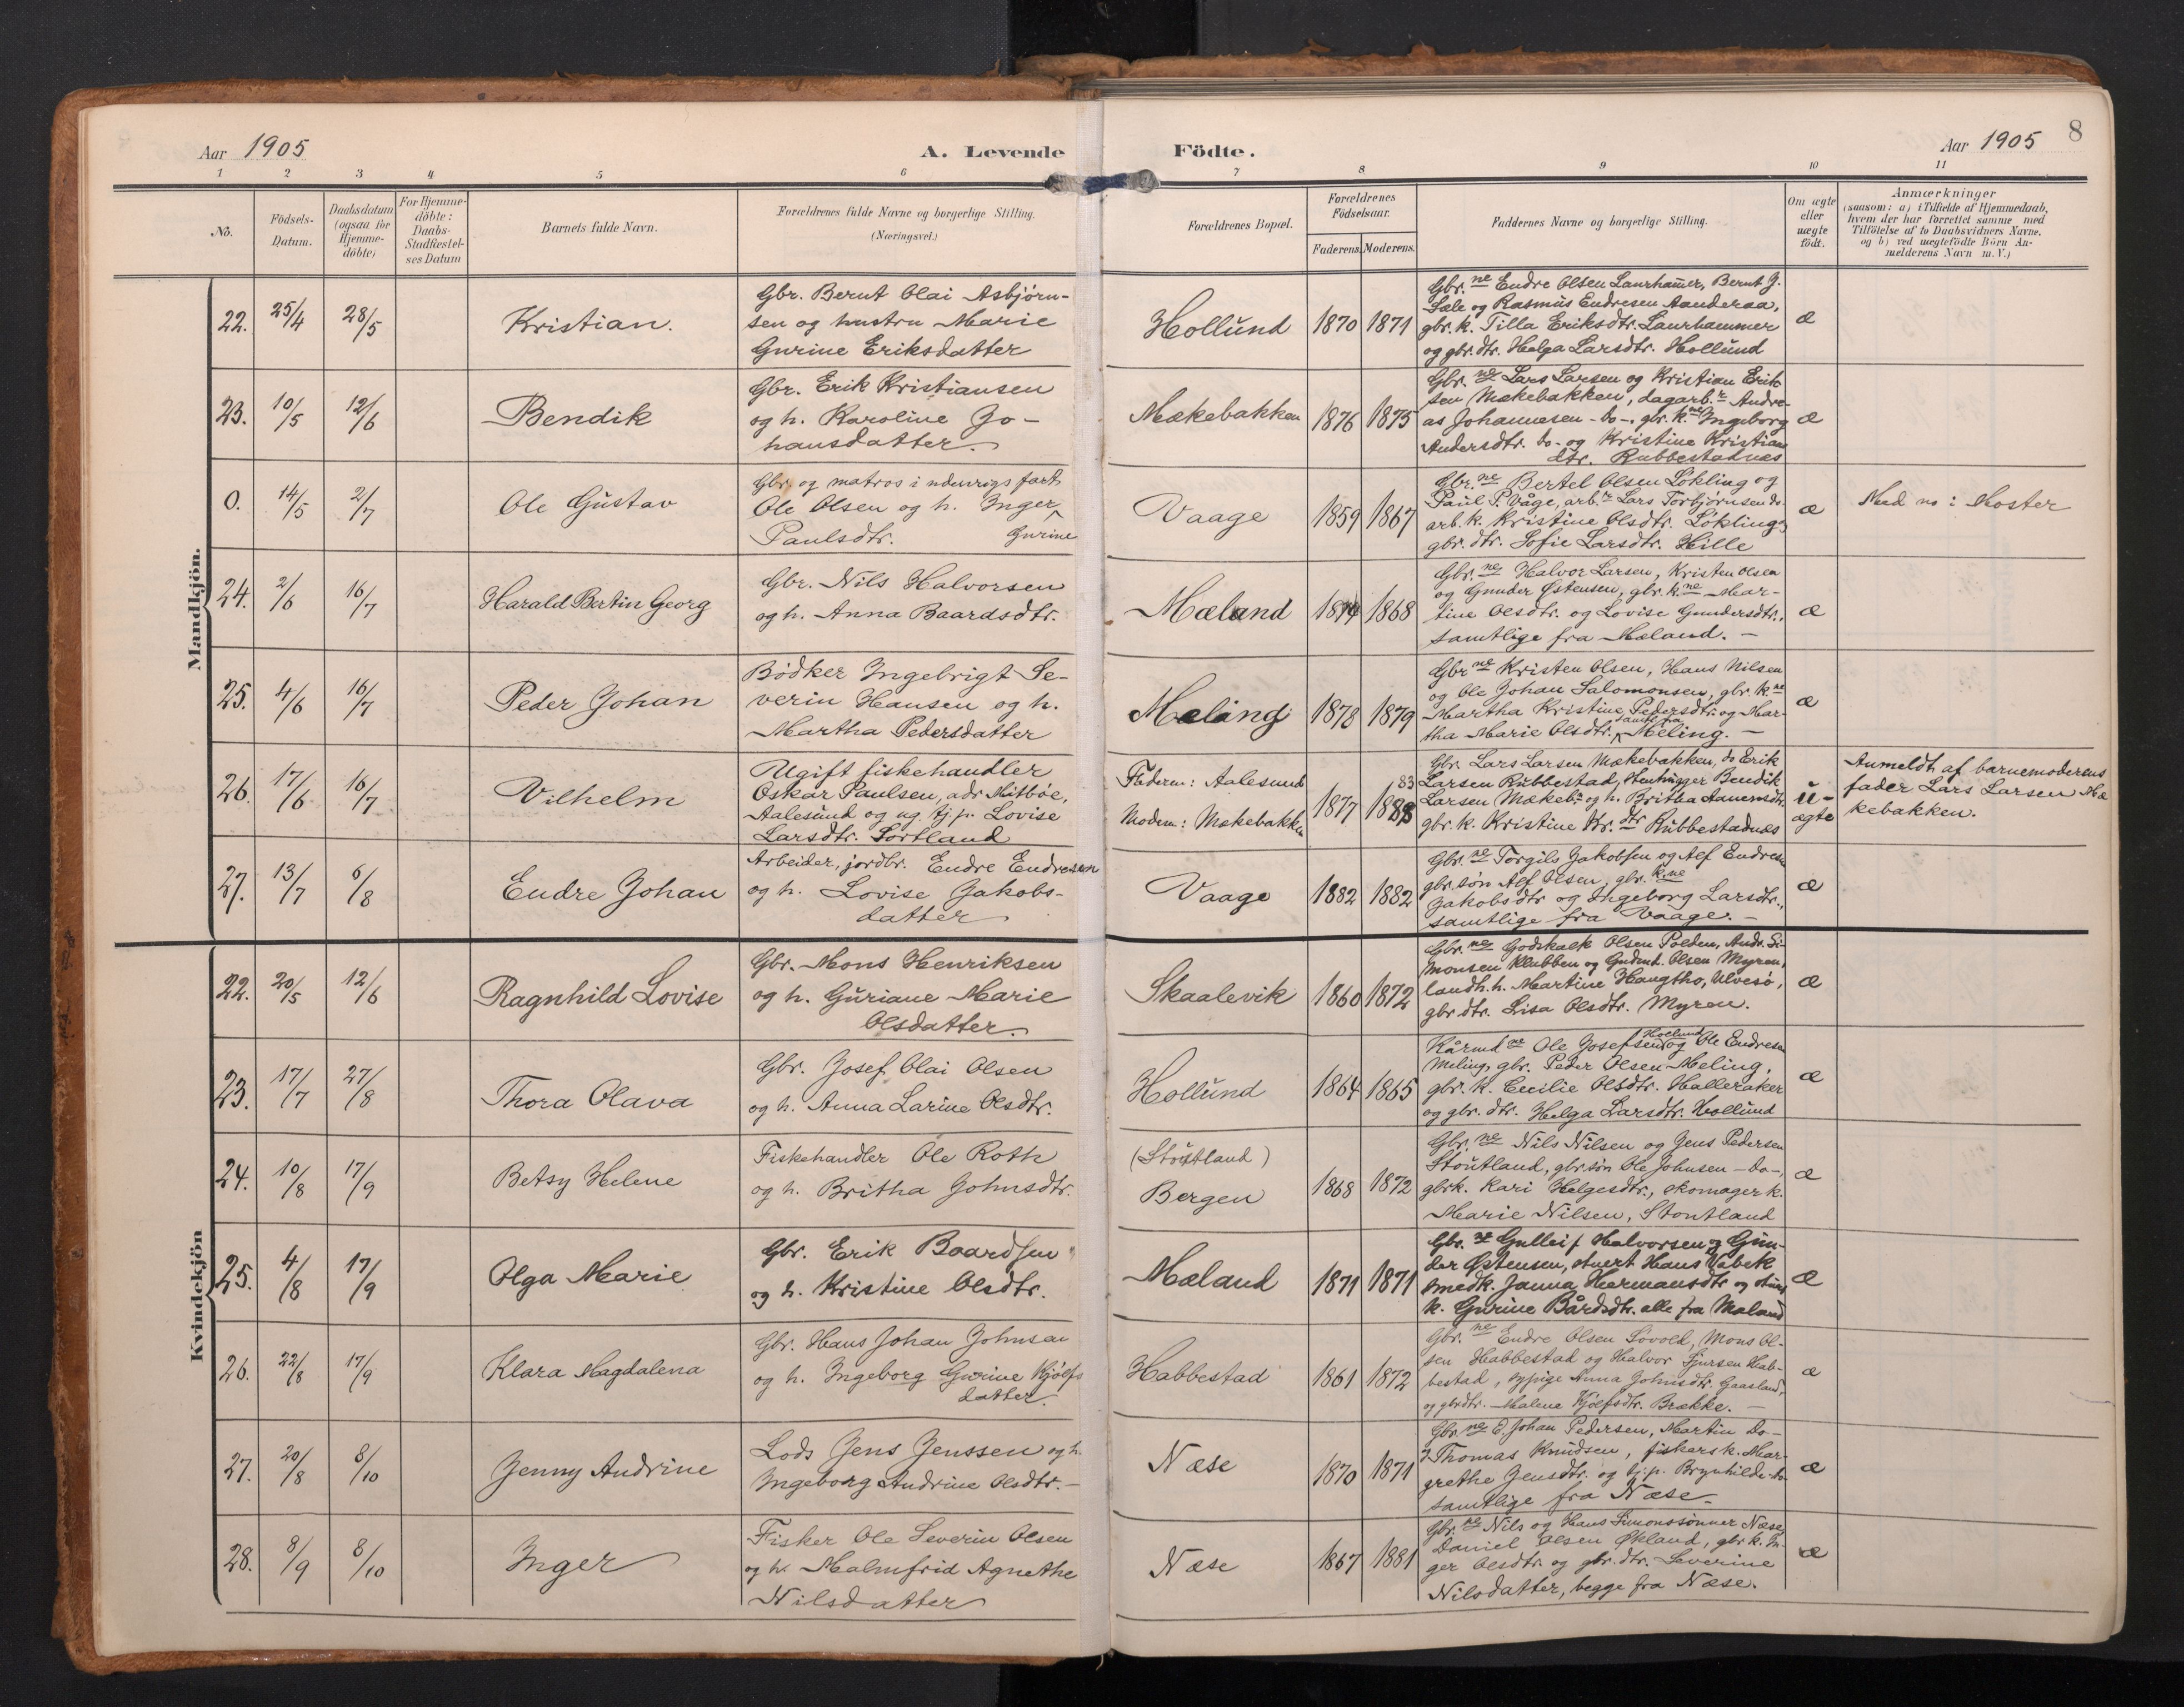 Aar 1905
A. Levende Födte.
Aar 1905
8
1 2 3 4 5 6 7 8 9 10 11
No.
Födsels-
Datum.
Daabsdatum
(ogsaa for
Hjemme-
döbte)
For Hjemme-
döbte:
Daabs-
Stadfæstel-
ses Datum
Barnets fulde Navn.
Forældrenes fulde Navne og borgerlige Stilling.
(Næringsvei.)
Forældrenes Bopæl.
Forældrenes
Födselsaar.
Faderens. Moderens.
Faddernes Navne og borgerlige Stilling.
Om ægte
eller
uægte
födt.
Anmærkninger
(saasom: a) i Tilfælde af Hjemmedaab,
hvem der har forrettet samme med
Tilföielse af to Daabsvidners Navne,
og b) ved uægtefödte Börn An-
melderens Navn m.V.)
Mandkjön.
22. 25/4 28/5 Kristian.
Gbr. Bernt Olai Asbjørn-
sen og hustru Marie
Gurine Eriksdatter
Hollund 1870 1871
Gbr.ne Endre Olsen Laurhammer, Bernt J.
Sale og Rasmus Endresen Aanderaa,
gbr. k. Tilla Eriksdtr. Laurhammer
og gbr. dtr. Helga Larsdtr. Hollund
æ
23. 10/5 12/6 Bendik
Gbr. Erik Kristiansen
og h. Karoline Jo-
hansdatter.
Mækebakken 1876 1875
Gbr.ne Lars Larsen og Kristian Erik
sen Mækebakken, dagarb.r Andre-
as Johannesen -do-, gbr. k.ne Ingeborg
Andersdtr. do- og Kristine Kristians
dtr. Rubbestadnæs
æ
0. 14/5 2/7 Ole Gustav
Gbr. og matros i udenrigs fart
Ole Olsen og h. Inger
Paulsdtr. Gurine
Vaage 1859 1867
Gbr.ne Bertel Olsen Løkling og
Paul P. Våge, arb.r Lars Torbjørnsen do.
arb. k. Kristine Olsdtr. Løkling,
gbr. dtr. Sofie Larsdtr. Hille
æ
Med no i Moster
24. 2/6 16/7 Harald Bertin Georg
Gbr. Nils Halvorsen
og h. Anna Baardsdtr.
Mæland 1874 1868
Gbr.ne Halvor Larsen, Kristen Olsen
og Gunder Østensen, gbr. k.ne Mar-
tine Olsdtr. og Lovise Gundersdtr.,
samtlige fra Mæland. -
æ
25. 4/6 16/7 Peder Johan
Bødker Ingebrigt Se-
verin Hansen og h.
Martha Pedersdatter
Meling 1878 1879
Gbr.ne Kristen Olsen, Hans Nilsen
og Ole Johan Salomonsen, gbr. k.ne
Martha Kristine Pedersdtr. og Mar-
tha Marie Olsdtr. samtl. fra Meling. -
æ
26. 17/6 16/7 Vilhelm
Ugift fiskehandler
Oskar Paulsen, adr Mitboe,
Aalesund og ug. tj.p. Lovise
Larsdtr. Sortland
Faderen: Aalesund
Modern: Mækebakken
1877 1888 83
Gbr. Lars Larsen Mækebakken, do Erik
Larsen Rubbestad, Stenhugger Bendik
Larsen Mækeb. og h. Britha
gbr. k. Kristine Kr.dtr Rubbestadnæs
u-
ægte
Anmeldt af barnemoderens
fader Lars Larsen Mæ
kebakken.
27. 13/7 6/8 Endre Johan
Arbeider, jordbr. Endre Endresen
og h. Lovise Jakobs-
datter
Vaage 1882 1882
Gbr.ne Torgils Jakobsen og Alf Endresen
gbr. søn Alf Olsen, gbr. k.ne
Jakobsdtr og Ingeborg Larsdtr.,
samtlige fra Vaage. -
æ
Kvindekjön
22. 20/5 12/6 Ragnhild Lovise
Gbr. Mons Henriksen
og h. Guriane Marie
Olsdatter.
Skaalevik 1860 1872
Gbr.ne Godskalk Olsen Polden, Andr. Si-
monsen Klubben og Gudmd. Olsen Myren,
landh. h. Martine Haugtho, Ulvesø,
gbr dtr. Lisa Olsdtr. Myren.
æ
23. 17/7 27/8 Thora Olava
Gbr. Josef Olai Olsen
og h. Anna Larine Olsdtr.
Hollund 1864 1865
Kårmd.ne Ole Josefsen Hollund og Ole Endresen
Meling, gbr. Peder Olsen Meling,
gbr. k. Cecilie Olsdtr. Halleraker
og gbr. dtr. Helga Larsdtr. Hollund
æ
24. 10/8 17/9 Betsy Helene
Fiskehandler Ole Roth
og h. Britha Johnsdtr.
(Stoutland)
Bergen 1868 1872
Gbr.ne Nils Nilsen og Jens Pedersen
Stoutland, gbr. søn Ole Johnsen -do-,
gbrk. Kari Helgesdtr., skomager k.
Marie Nilsen, Stoutland
æ
25. 4/8 17/9 Olga Marie
Gbr. Erik Baardsen
og h. Kristine Olsdtr.
Mæland 1871 1871
Gbr.ne Gulleif Halvorsen og Gun-
der Østensen, stuert Hans Vabek
smedk. Janna Hermansdtr og
k. Gurine Bårdsdtr. alle fra Mæland
æ
26. 22/8 17/9 Klara Magdalena
Gbr. Hans Johan Johnsen
og h. Ingeborg Gurine Kjølfs
datter.
Habbestad 1861 1872
Gbr.ne Endre Olsen Løvold, Mons Ol-
sen Habbestad og Halvor Sjursen Hab-
bestad, sypige Anna Johnsdtr. Gaasland,
og gbrdtr. Malene Kjølfsdtr. Brække. -
æ
27. 20/8 8/10 Jenny Andrine
Lods Jens Jenssen og h.
Ingeborg Andrine Olsdtr. -
Næse 1870 1871
Gbr.ne E. Johan Pedersen, Martin do -
Thomas Knudsen, fiskersk. Mar-
grethe Jensdtr. og tj.p. Brynhilde do
samtlige fra Næse.
æ
28. 8/9 8/10 Inger
Fisker Ole Severin Olsen
og h. Malmfrid Agnethe
Nilsdatter
Næse 1867 1881
Gbr.ne Nils og Hans Simonssønner Næse,
Daniel Olsen Økland, gbr. k. In-
ger Olsdtr. og gbr. dtr. Severine
Nilsdatter, begge fra Næse.
æ